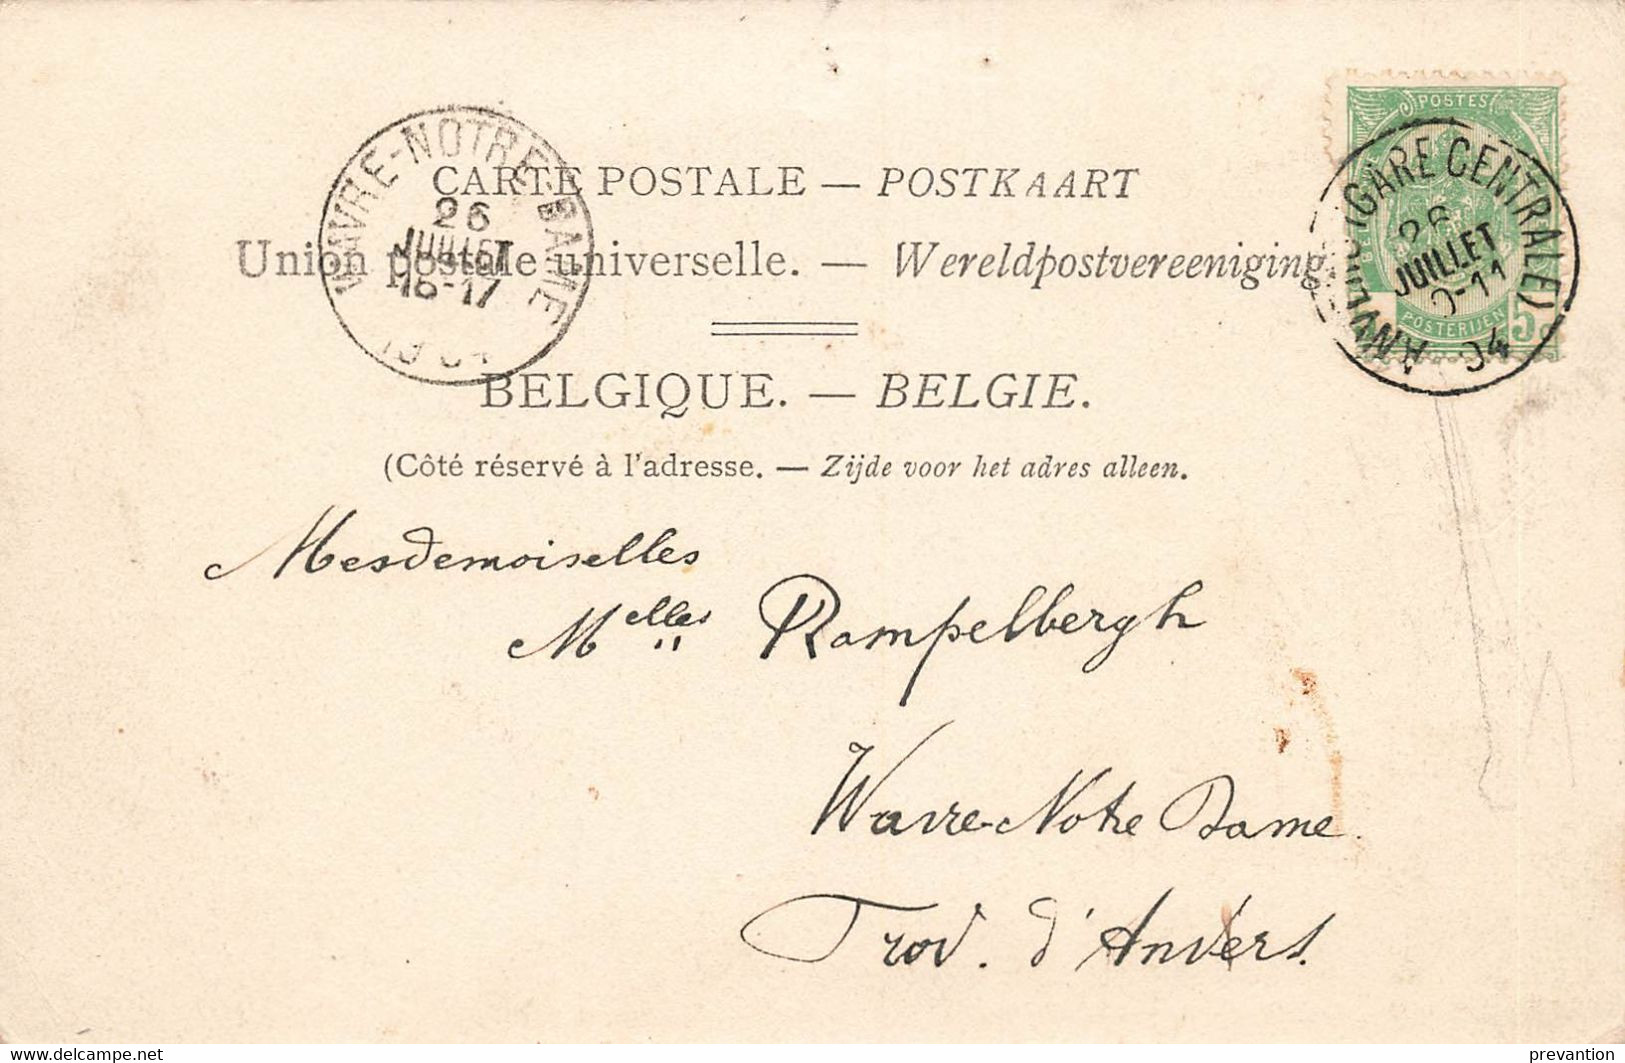 POSTES
BELGIQUE
POSTERIJEN
5c
(GARE CENTRALE)
26
JUILLET
-11
04
WAVRE-NOTRE-DAME
26
JUILLET
16-17
CARTE POSTALE — POSTKAART
Union postale universelle. — Wereldpostvereeniging
BELGIQUE. — BELGIE.
(Côté réservé à l'adresse. — Zijde voor het adres alleen.
Mesdemoiselles
Melles Rampelbergh
Wavre-Notre Dame.
Prov. d'Anvers.
www.delcampe.net
prevantion